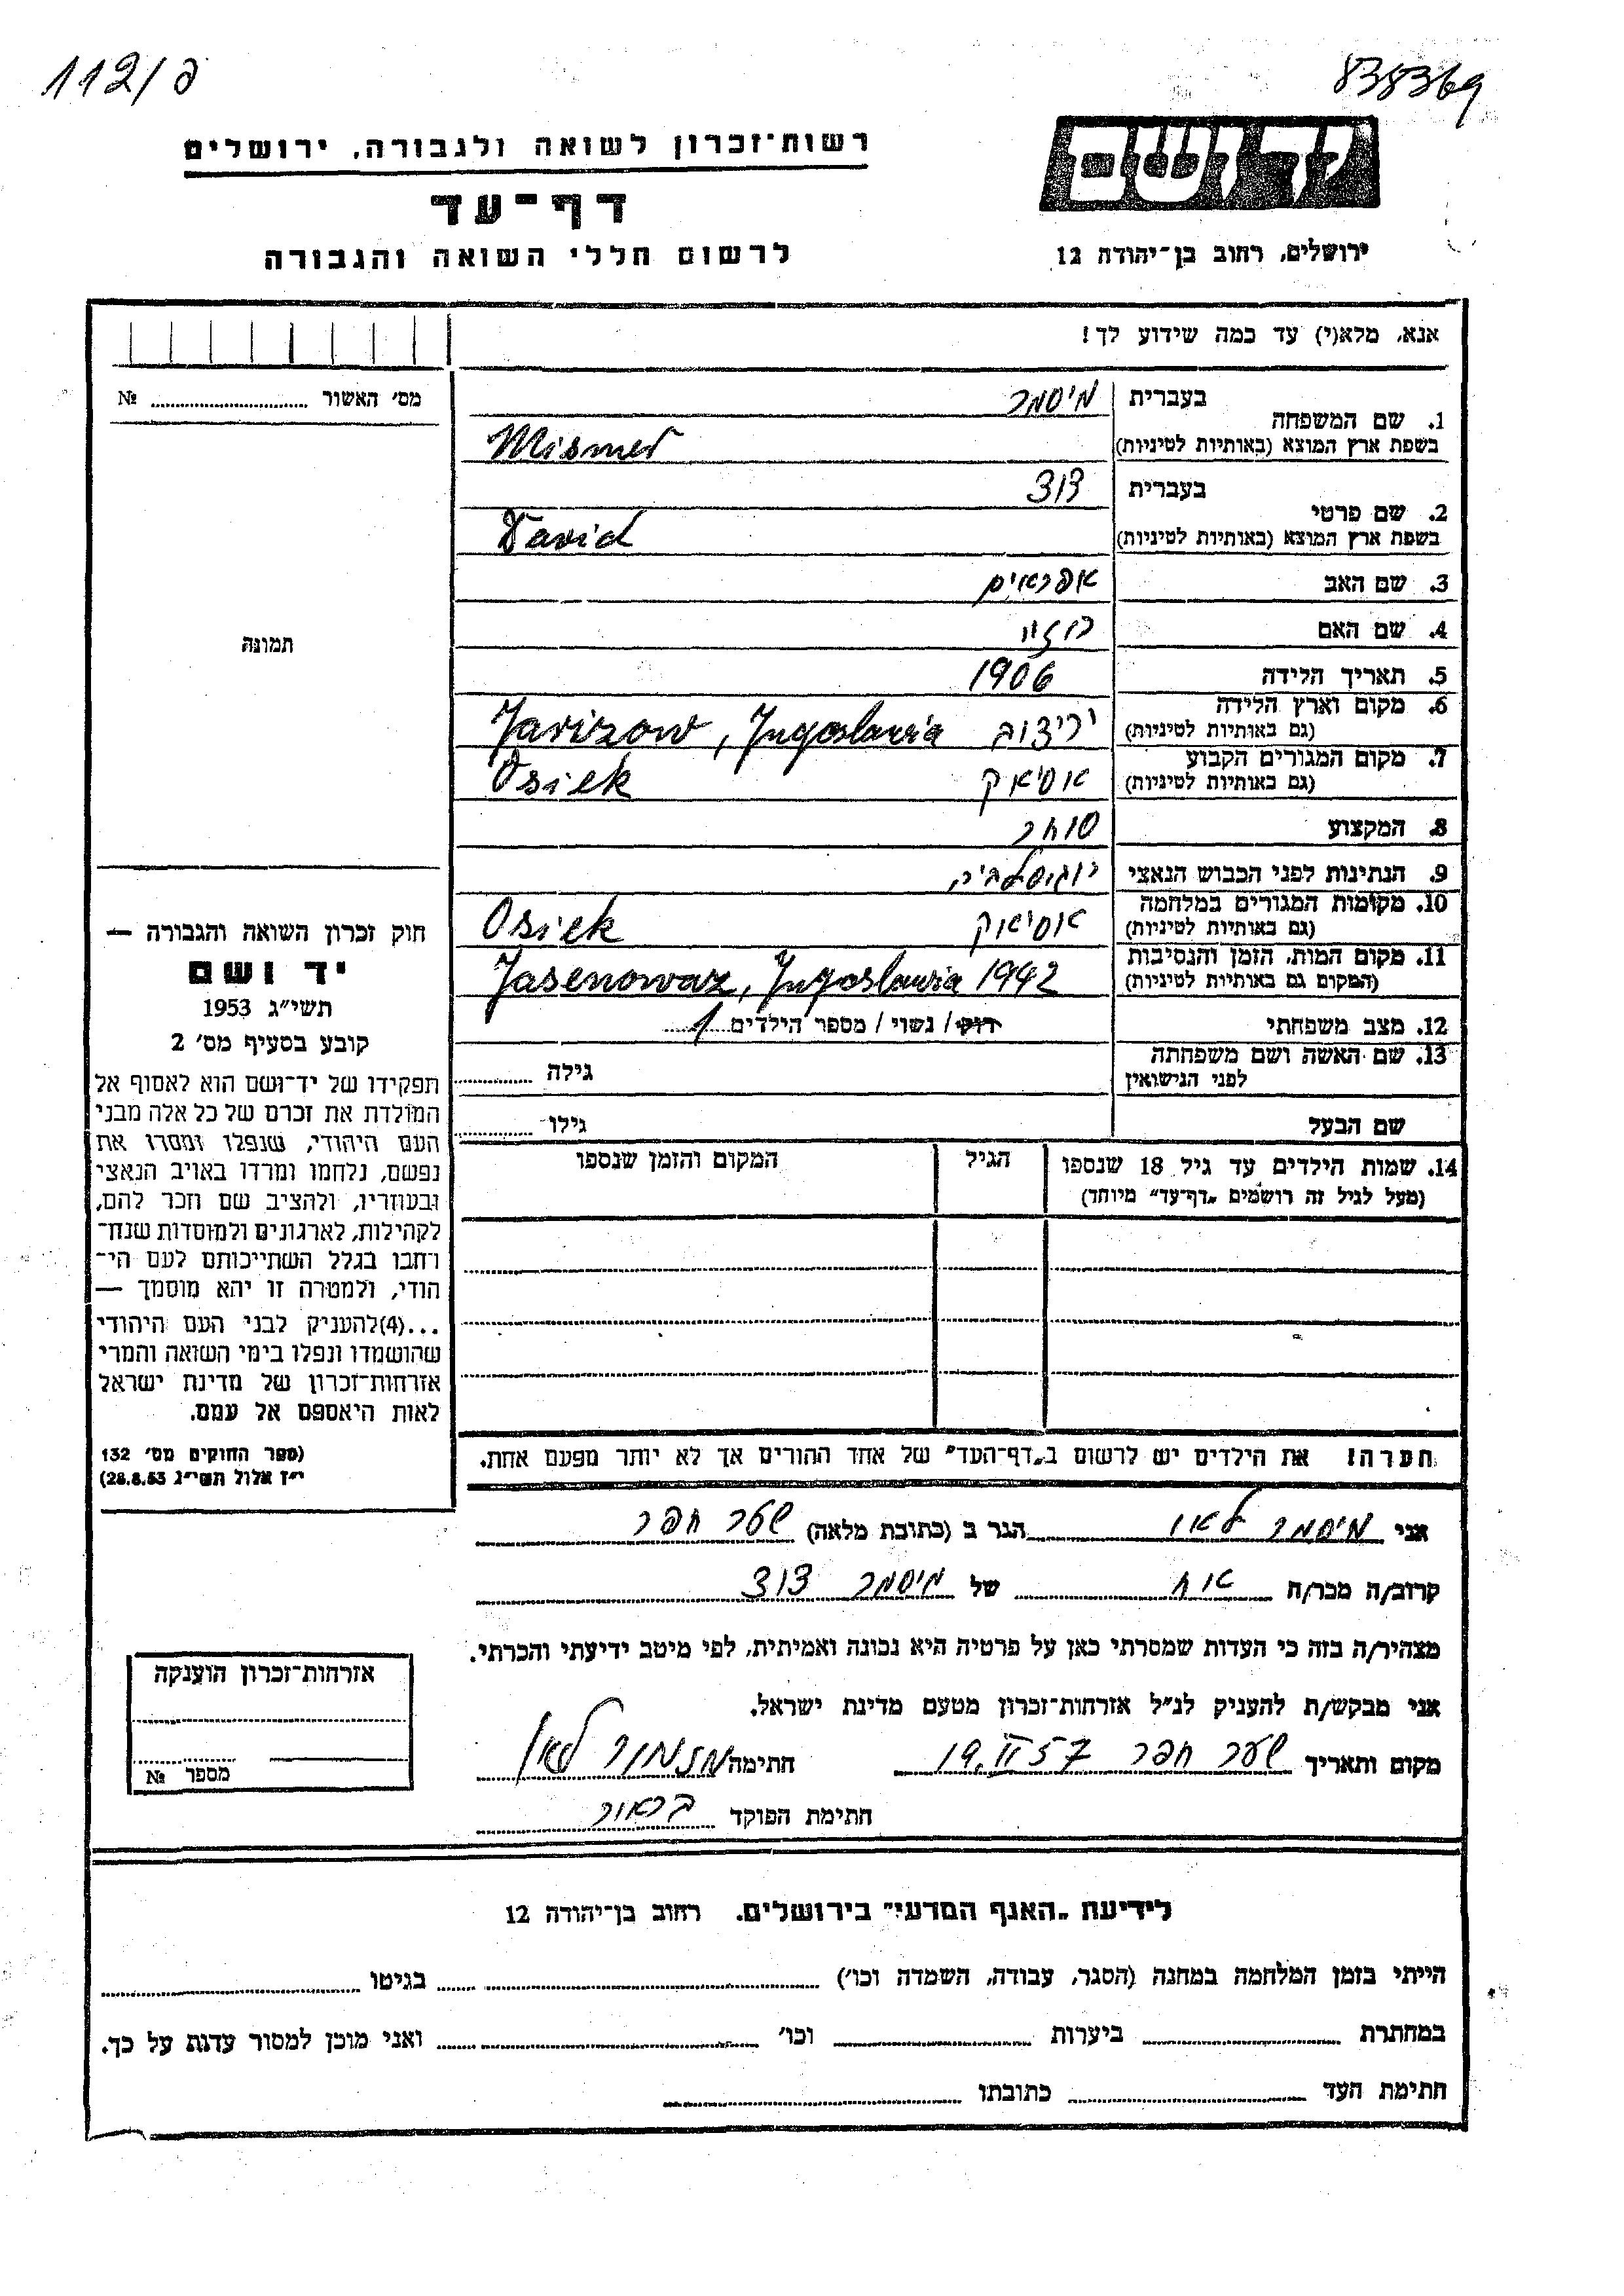 112/פ
838369
יד ושם
רשות־זכרון לשואה ולגבורה, ירושלים
דף־עד
לרשום חללי השואה והגבורה
ירושלים, רחוב בן־יהודה 12
אנא, מלא(י) עד כמה שידוע לך!
מס׳ האשור № 
תמונה
1. שם המשפחה בעברית מיסמר
בשפת ארץ המוצא (באותיות לטיניות) Mismer
2. שם פרטי בעברית דוד
בשפת ארץ המוצא (באותיות לטיניות) David
3. שם האב אפראים
4. שם האם רוזה
5. תאריך הלידה 1906
6. מקום וארץ הלידה (גם באותיות לטיניות) יריזוב Jarizow, Jugoslawia
7. מקום המגורים הקבוע (גם באותיות לטיניות) אוסיאק Osiek
8. המקצוע סוחר
9. הנתינות לפני הכבוש הנאצי יוגוסלביה
10. מקומות המגורים במלחמה (גם באותיות לטיניות) אוסיאק Osiek
11. מקום המות, הזמן והנסיבות (המקום גם באותיות לטיניות) Jasenowaz, Jugoslawia 1942
12. מצב משפחתי רווק / נשוי / מספר הילדים 1
13. שם האשה ושם משפחתה לפני הנישואין גילה
שם הבעל גילו
14. שמות הילדים עד גיל 18 שנספו הגיל המקום והזמן שנספו
(מעל לגיל זה רושמים „דף־עד״ מיוחד)
חוק זכרון השואה והגבורה —
יד ושם
תשי״ג 1953
קובע בסעיף מס׳ 2
תפקידו של יד־ושם הוא לאסוף אל
המולדת את זכרם של כל אלה מבני
העם היהודי, שנפלו ומסרו את
נפשם, נלחמו ומרדו באויב הנאצי
ובעוזריו, ולהציב שם וזכר להם,
לקהילות, לארגונים ולמוסדות שנח־
רבו בגלל השתייכותם לעם הי־
הודי, ולמטרה זו יהא מוסמך —
...(4)להעניק לבני העם היהודי
שהושמדו ונפלו בימי השואה והמרי
אזרחות־זכרון של מדינת ישראל
לאות היאספם אל עמם.
(ספר החוקים מס׳ 132
י״ז אלול תשי״ג 28.8.53)
הערה! את הילדים יש לרשום ב„דף־העד״ של אחד ההורים אך לא יותר מפעם אחת.
אני מיסמר לאון הגר ב (כתובת מלאה) שער חפר
קרוב/ה מכר/ה אח של מיסמר דוד
מצהיר/ה בזה כי העדות שמסרתי כאן על פרטיה היא נכונה ואמיתית, לפי מיטב ידיעתי והכרתי.
אני מבקש/ת להעניק לנ״ל אזרחות־זכרון מטעם מדינת ישראל.
מקום ותאריך שער חפר 19.II 57 חתימה מזמור לאון
חתימת הפוקד
אזרחות־זכרון הוענקה
מספר №
לידיעת „האגף המדעי״ בירושלים, רחוב בן־יהודה 12
הייתי בזמן המלחמה במחנה (הסגר, עבודה, השמדה וכו׳) בגיטו
במחתרת ביערות וכו׳ ואני מוכן למסור עדות על כך.
חתימת העד כתובתו